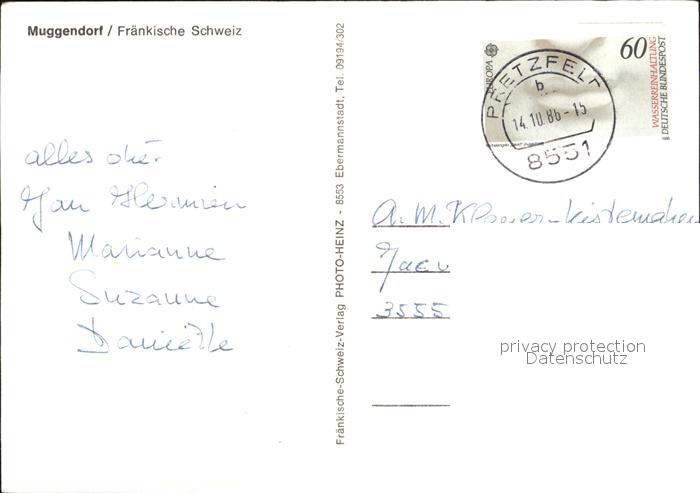 Muggendorf / Fränkische Schweiz
alles oké.
Jan Hermien
Marianne
Suzanne
Daniëlle
Fränkische-Schweiz-Verlag PHOTO-HEINZ - 8553 Ebermannstadt, Tel. 09194/302
EUROPA
60
WASSERREINHALTUNG
DEUTSCHE BUNDESPOST
PRETZFELD
b
14.10.86-15
8551
A. M.
3555
privacy protection
Datenschutz